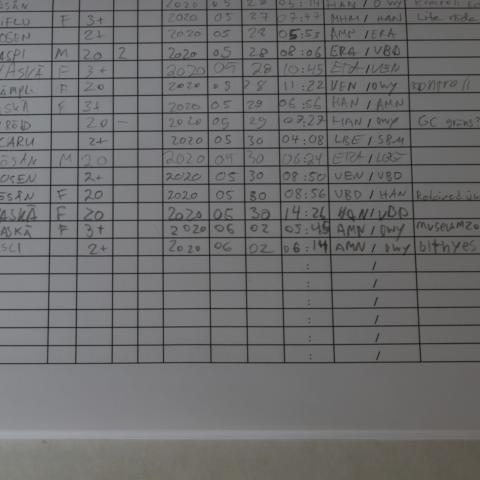 2020 05 28 05:14 HAN / OWY
IFLU F 3+ 2020 05 27 07:47 MHM / HAN Lite
OSEN 2+ 2020 05 28 05:53 AMP / ERA
ASPI M 20 2 2020 05 28 08:06 ERA / VBD
ASKÄ F 3+ 2020 05 28 10:45 / VEN
F 20 2020 05 28 11:22 VEN / OWY
ASKÄ F 3+ 2020 05 29 06:56 HAN / AMN
20 - 2020 05 29 07:27 HAN / OWY GC
CARU 2+ 2020 05 30 04:08 LBE / SBM
M 20 2020 05 30 06:24
OSEN 2+ 2020 05 30 08:50 VEN / VBD
ESÅN F 20 2020 05 30 08:56 VBD / HAN
ASKÄ F 20 2020 05 30 14:26 HAN / VBD
ASKÄ F 3+ 2020 06 02 05:45 AMN / OWY
SCI 2+ 2020 06 02 06:14 AMN / OWY
: /
: /
: /
: /
: /
: /